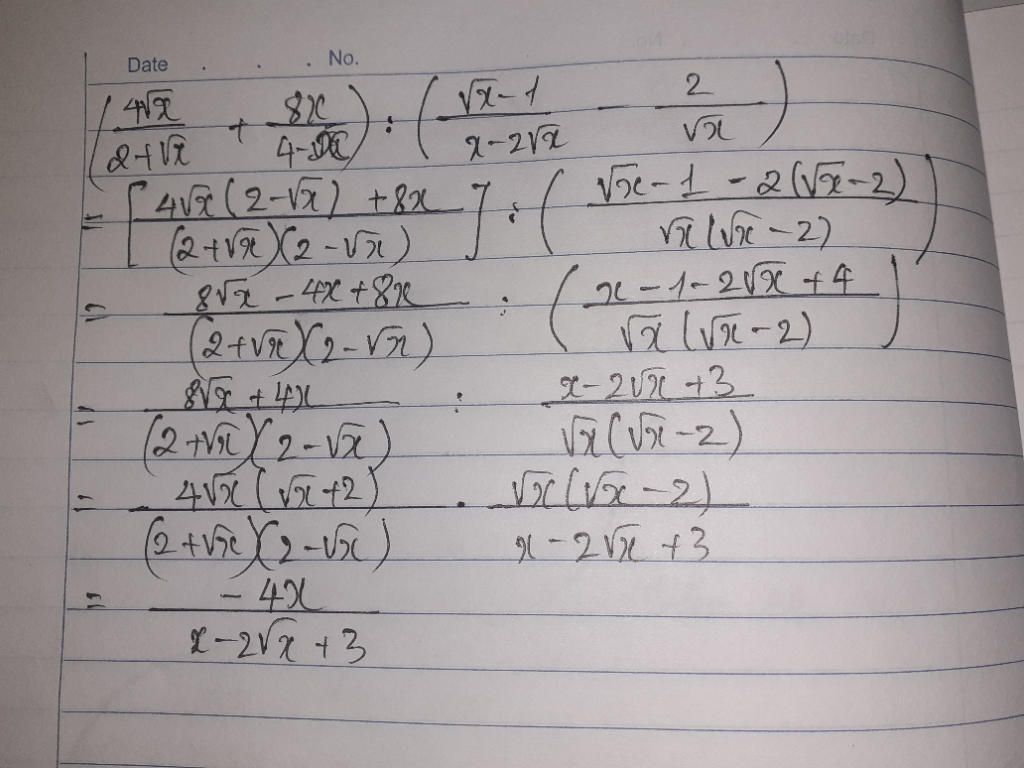 Date . . . No.
(4√x/(2+√x) + 8x/(4-x)) : ((√x-1)/(x-2√x) - 2/√x)
= [(4√x(2-√x) +8x)/((2+√x)(2-√x))] : ((√x-1-2(√x-2))/(√x(√x-2)))
= (8√x-4x+8x)/((2+√x)(2-√x)) : ((x-1-2√x+4)/(√x(√x-2)))
= (8√x+4x)/((2+√x)(2-√x)) : (x-2√x+3)/(√x(√x-2))
= (4√x(√x+2))/((2+√x)(2-√x)) . (√x(√x-2))/(x-2√x+3)
= (-4x)/(x-2√x+3)